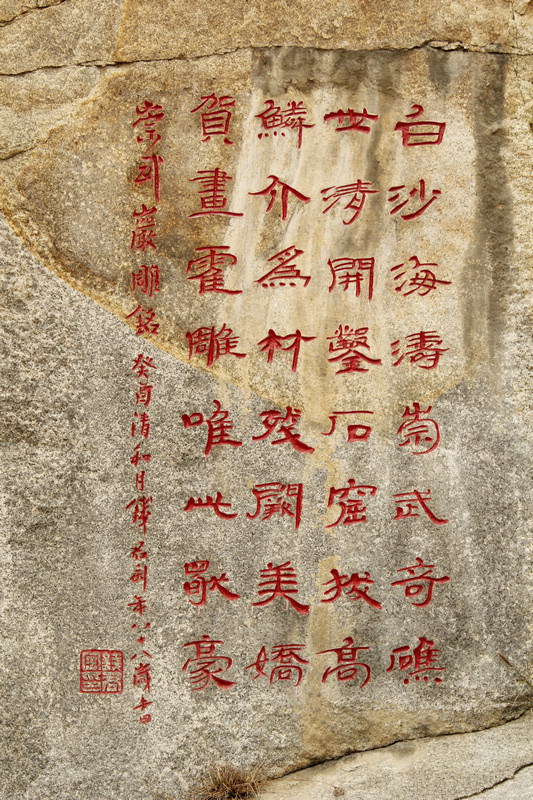 白沙海濤崇武奇礁
世清開鑿石窟拔高
鱗介為材殘闕美嬌
賀畫霍雕唯此最豪
崇武巖雕銘 癸酉清和月錢君匋年八十八